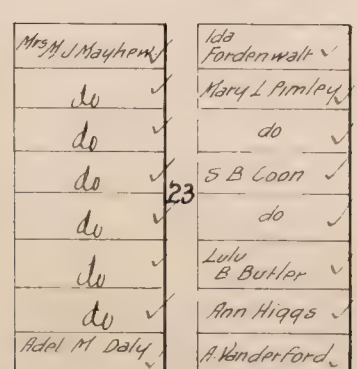 Mrs M J Mayhew
do
do
do
do
do
do
Adel M Daly
23
Ida
Fordenwalt
Mary L Pimley
do
S B Coon
do
Lulu
B Butler
Ann Higgs
A. Vanderford